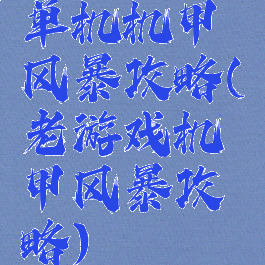 单机机甲
风暴攻略(
老游戏机
甲风暴攻
略)